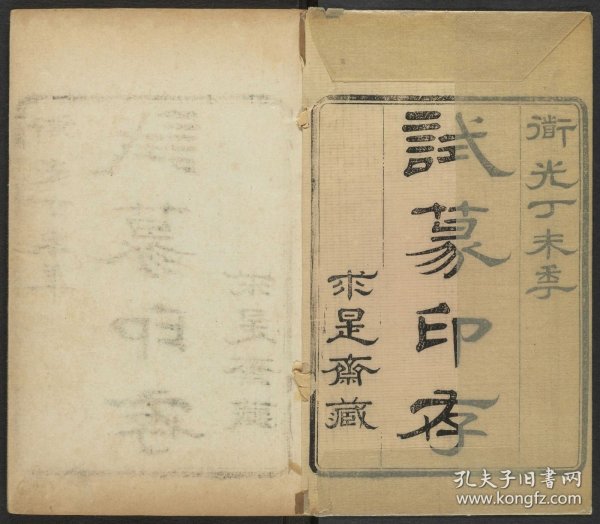 衜光丁未秊
試篆印存
求是齋藏
孔夫子旧书网
www.kongfz.com